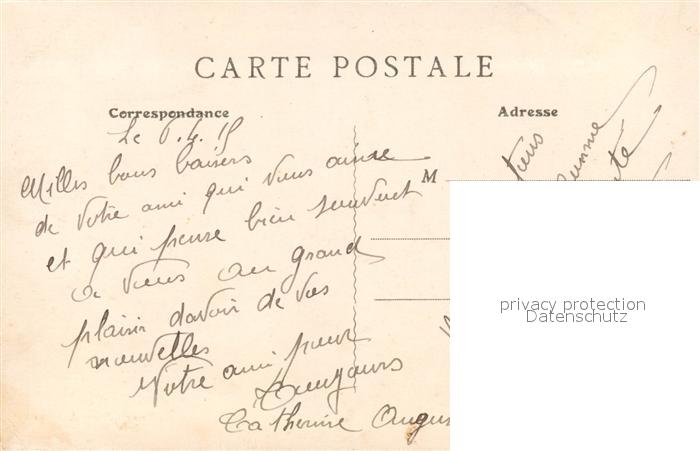 CARTE POSTALE
Correspondance
Adresse
Le 6.4.15
Milles bons baisers
de votre ami qui vous aime
et qui pense bien souvent
a vous au grand
plaisir davoir de vos
nouvelles
Votre ami pour
Toujours
Catherine Augus
M
privacy protection
Datenschutz